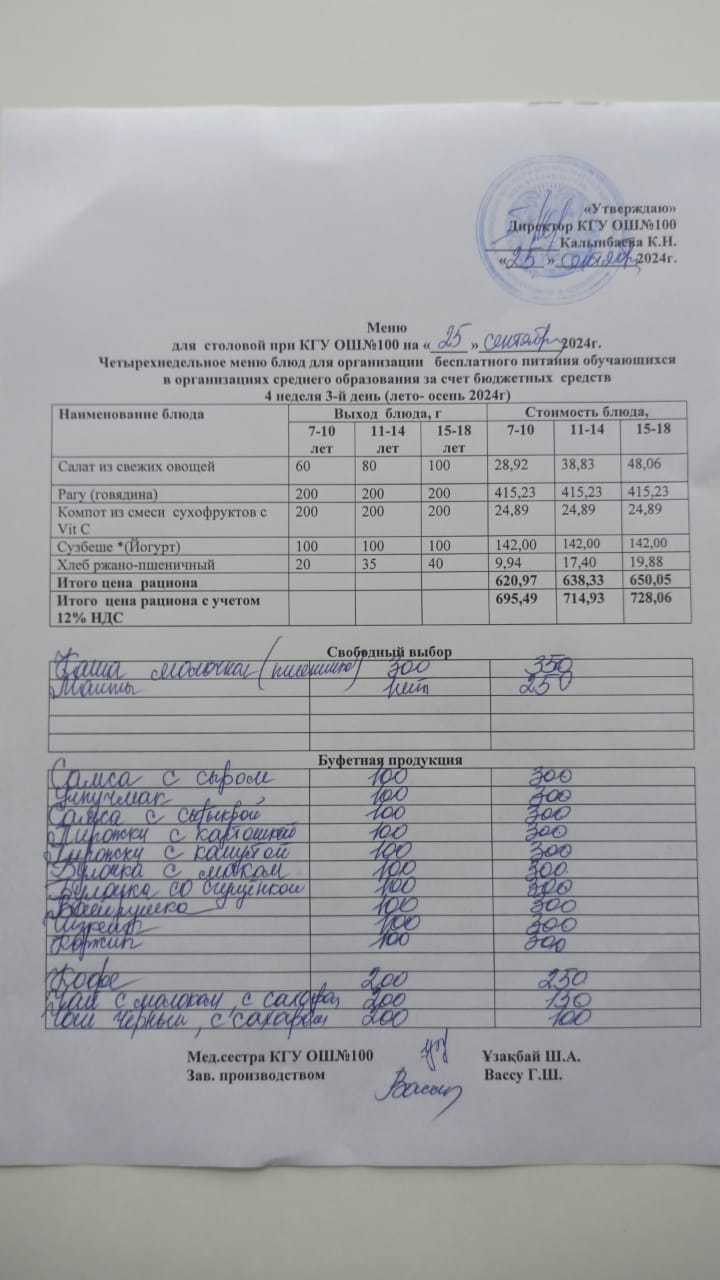 «Утверждаю»
Директор КГУ ОШ№100
__________Калынбаева К.Н.
«25» сентября 2024г.
Меню
для столовой при КГУ ОШ№100 на «25» сентября 2024г.
Четырехнедельное меню блюд для организации бесплатного питания обучающихся
в организациях среднего образования за счет бюджетных средств
4 неделя 3-й день (лето- осень 2024г)
Наименование блюда Выход блюда, г Стоимость блюда,
7-10 лет 11-14 лет 15-18 лет 7-10 11-14 15-18
Салат из свежих овощей 60 80 100 28,92 38,83 48,06
Рагу (говядина) 200 200 200 415,23 415,23 415,23
Компот из смеси сухофруктов с 200 200 200 24,89 24,89 24,89
Vit C
Сузбеше *(Йогурт) 100 100 100 142,00 142,00 142,00
Хлеб ржано-пшеничный 20 35 40 9,94 17,40 19,88
Итого цена рациона 620,97 638,33 650,05
Итого цена рациона с учетом 695,49 714,93 728,06
12% НДС
Свободный выбор
Каша молочная 300 350
Манты 250
Буфетная продукция
Самса с сыром 100 300
100 300
Самса с 100 300
Пирожки с картошкой 100 300
Пирожки с капустой 100 300
Булочка с маком 100 300
Булочка со сгущенкой 100 300
100 300
100 300
Коржик 100 300
Кофе 200 250
Чай с молоком, с сахаром 200 150
Чай черный, с сахаром 200 100
Мед.сестра КГУ ОШ№100 Ұзақбай Ш.А.
Зав. производством Вассу Г.Ш.